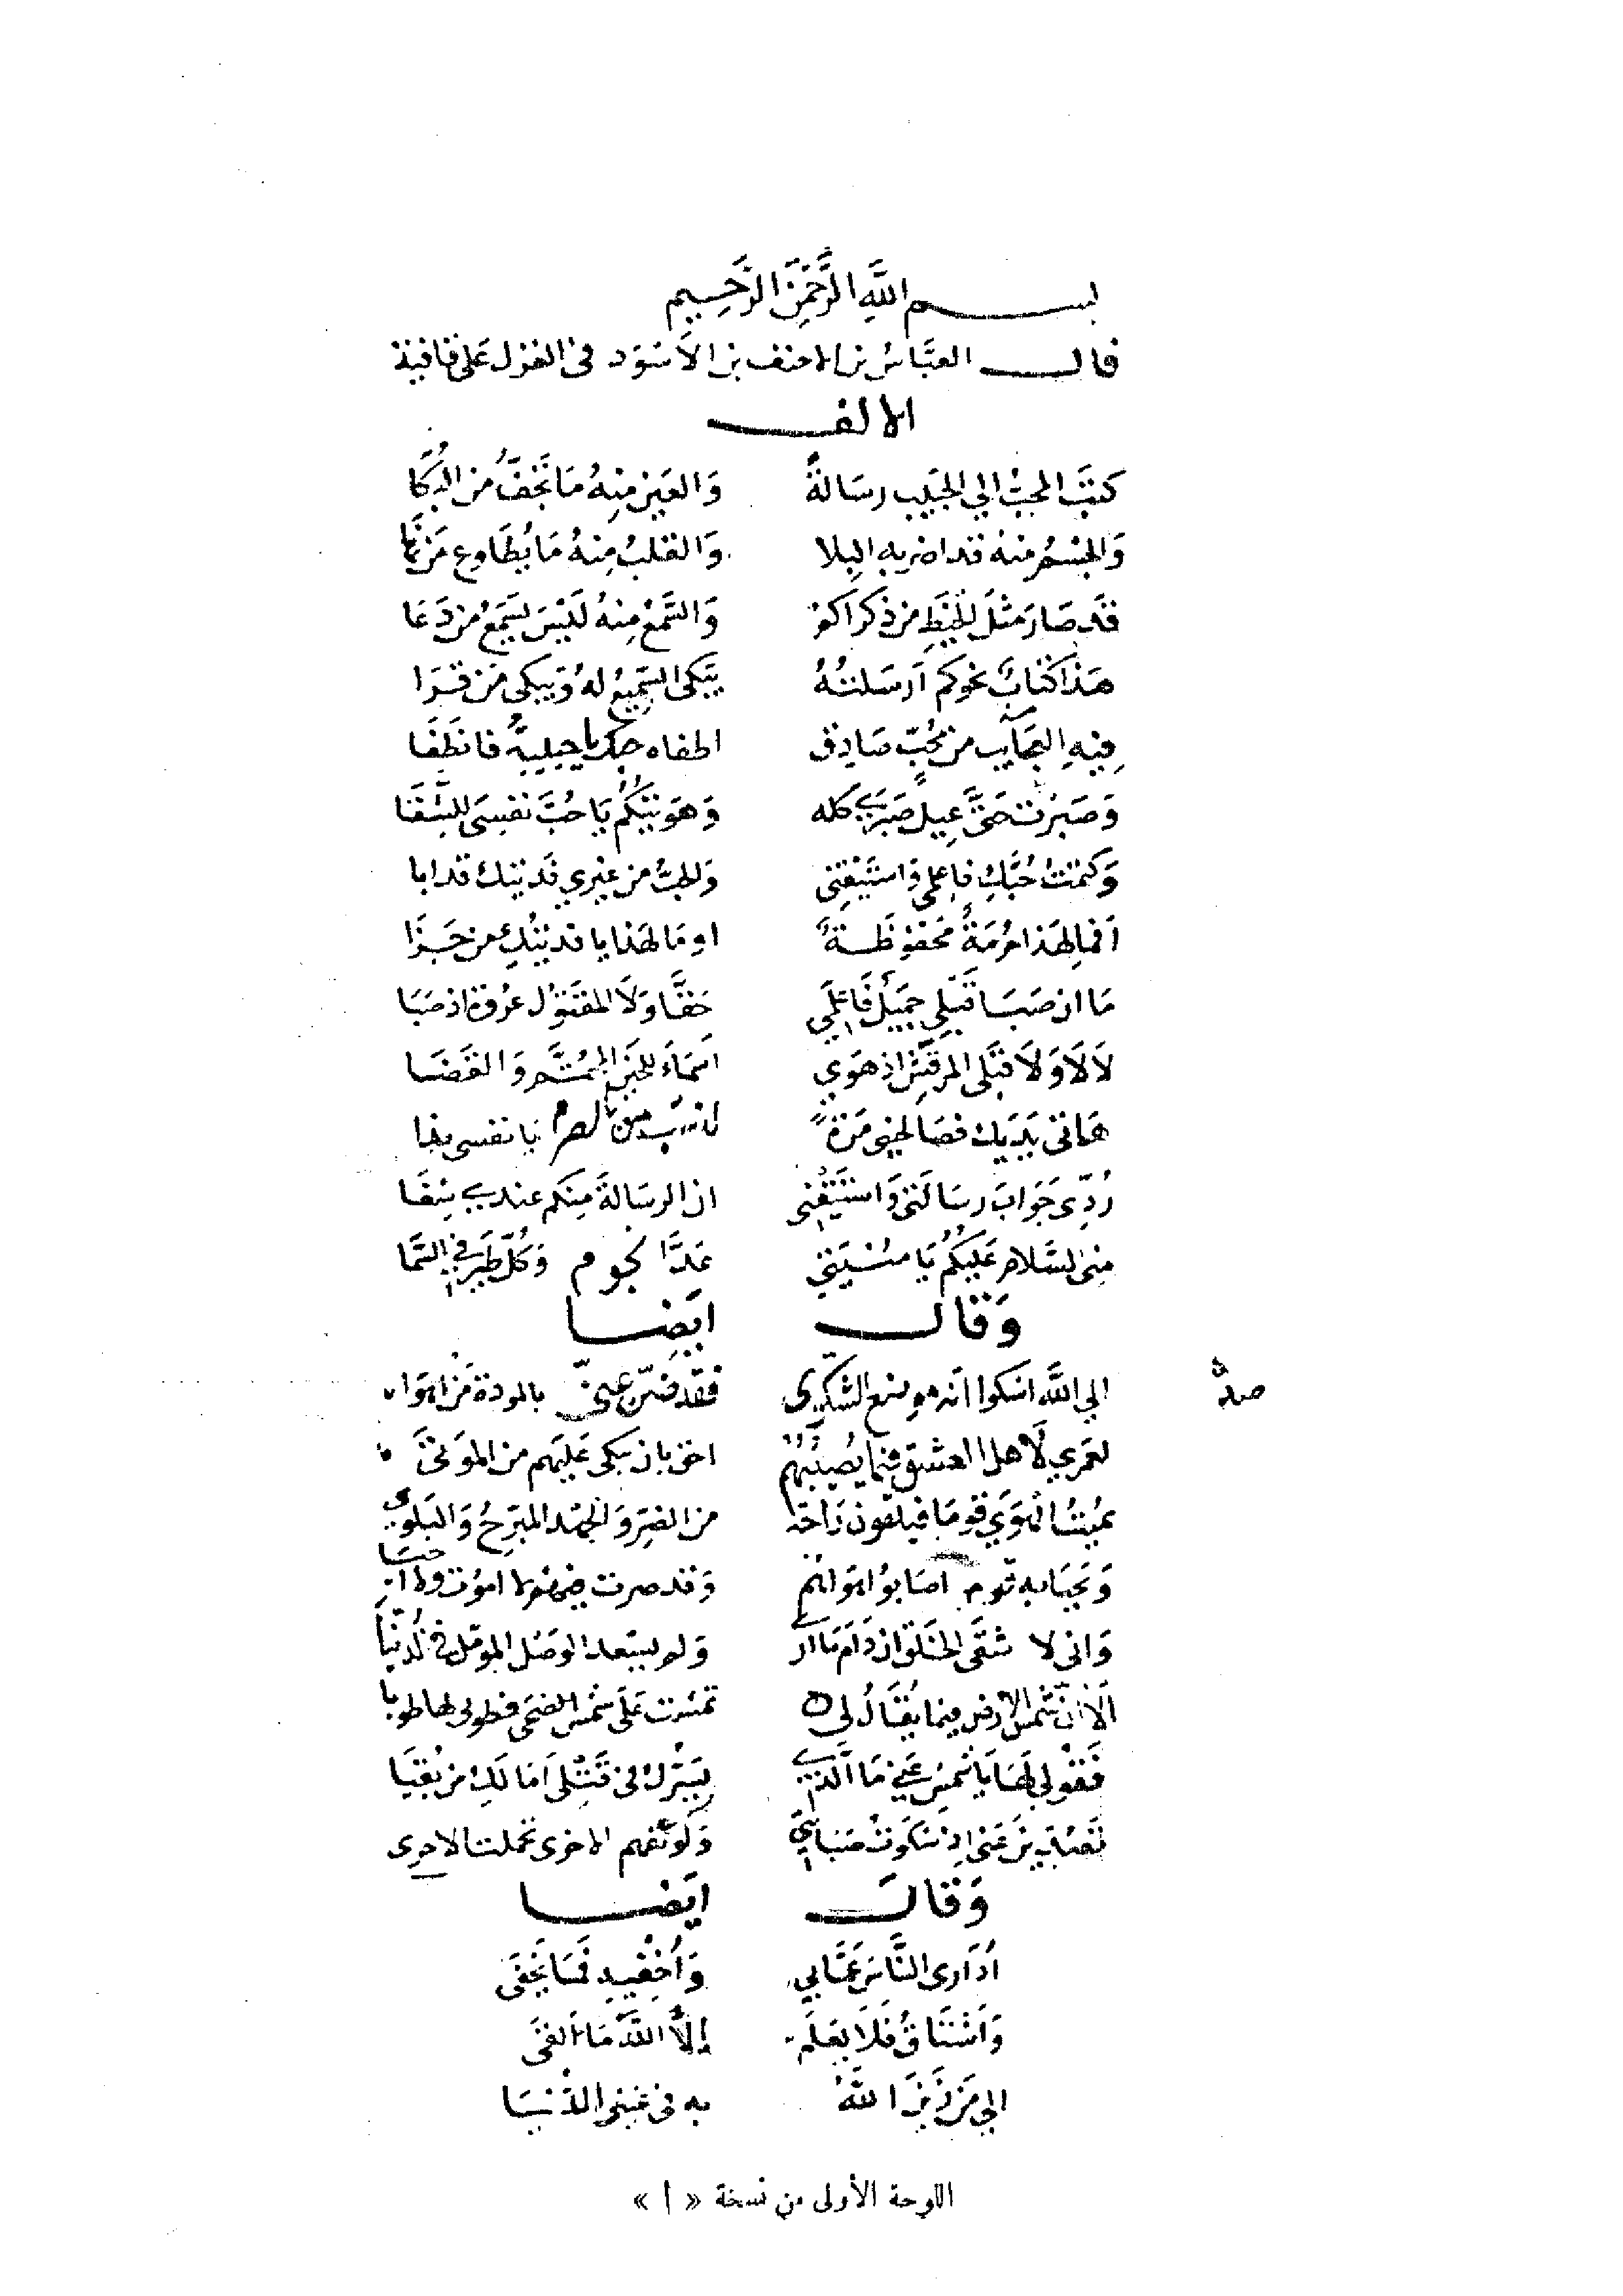 بسم اللَّهِ الرَّحْمَنِ الرَّحِيم
قال العبَّاسُ بن الاحنف بن الأَسْوَد في الغزل عَلى قافية
الالف
كتبَ المحبُّ الي الحَبيب رسَالةً وَالعَين منِهُ مَا تَجِفُّ من البُكَا
وَالجسْمُ منهُ قد اضربه البلا وَالقلبُ مِنهُ مَا يُطَاوع مَن نَهَا
قَد صَارَ مثلَ الخيَطِ من ذكراكم وَالسَّمعُ مِنهُ لَيْسَ يَسَمعُ من دَعَا
هَذا كتابٌ نحوكم اَرسَلتهُ يَبكى السَّمِيعُ لهُ وَيَبكى مَن قرَا
فِيهِ العجَايب من مُحُبّ صَادِق اطفاه حبك يا حبيبهُ فانطَفَا
وَصَبرْت حَتَّى عِيلَ صَبَري كله وَهَوَيتكُم يَا حُبَّ نفسِى للشقَا
وَكتمْتُ حُبَّكِ فاعلمى وَاستَيْقِنى وَالحبُّ من غيري فَديتك قد ابا
اَفمَا لِهَذا حُرمَةٌ مَحْفوْظَةٌ او مَا لهَذا يا فديتُكِ من جَزَا
مَا ان صَبَا قَبْلِي جَميَلٌ فَاعلَمي حَقَّا وَلاَ المقتَوُل عرُوة اذ صَبَا
لاَ لاَ وَلاَ قبَلى المرقّش اذ هَوَي اَسمَآءَ للحَين المحُتَّم وَالقَضَا
هَاتى يَدَيك فصَالحِينى مَرةً يا نفسى
رُدِّى جَوَابَ رسَالَتى وَاستَيْقِنى ان الرسَالةَ مِنكم عندي شِفَا
مِنى السَّلام عَليكُم يَا منُيَتي عَددَ نجوم وَكُلّ طَير فى السَّمَا
وَقال ايَضا
الي اللَّه اشكوا انه موضع الشكوى فقد صَدّ عنّى بالمودة مَن اهوَا
صد
لعَمري لأَهل العشق فيمَا يُصيبُهُم احَق بان يبكى عَليَهم من الموَتَى
يميُت الهَوَي قومًا فيلقون رَاحَة من الضرِّ وَالجَهد المبَرِّحُ وَالبَلوي
وَيحيَا به قوم اصَابوُا هَوَاهم وَقد صرت فيهم لا اموُت ولا احيَا
وَانى لا شقَى الخَلق ان دَامَ مَا اَرى وَلم يسَعد الوَصْل المؤمّل في الدُنيَا
اَلاَ ان شمَس الارض فيما يُقَالُ لى تمشت عَلَى شَمس الضحَى فطوبى لهَا طوبا
فَقوْلى لهَا يَا شمسُ عَنى مَا الَّذي يسَرُّك فى قَتْلى اَمَا لكِ من بُقيَا
تَصَدّين عَنى اِذ شكوت صَبابَتي وَلو تفهم الاخرى تحملت الاخرى
وَقَالَ ايَضا
أُدَاري النَّاسَ عَمَّا بي وَأُخْفِيهِ فَمَا يَخْفَى
وَاَشتَاقُ فلاَ يعَلَم إلاَّ اللَّهُ مَا اَلقَى
الي مَن زَيَّنَ اللَّهُ به فى عَينى الدُّنيَا
اللوحة الأولى من نسخة « ا »